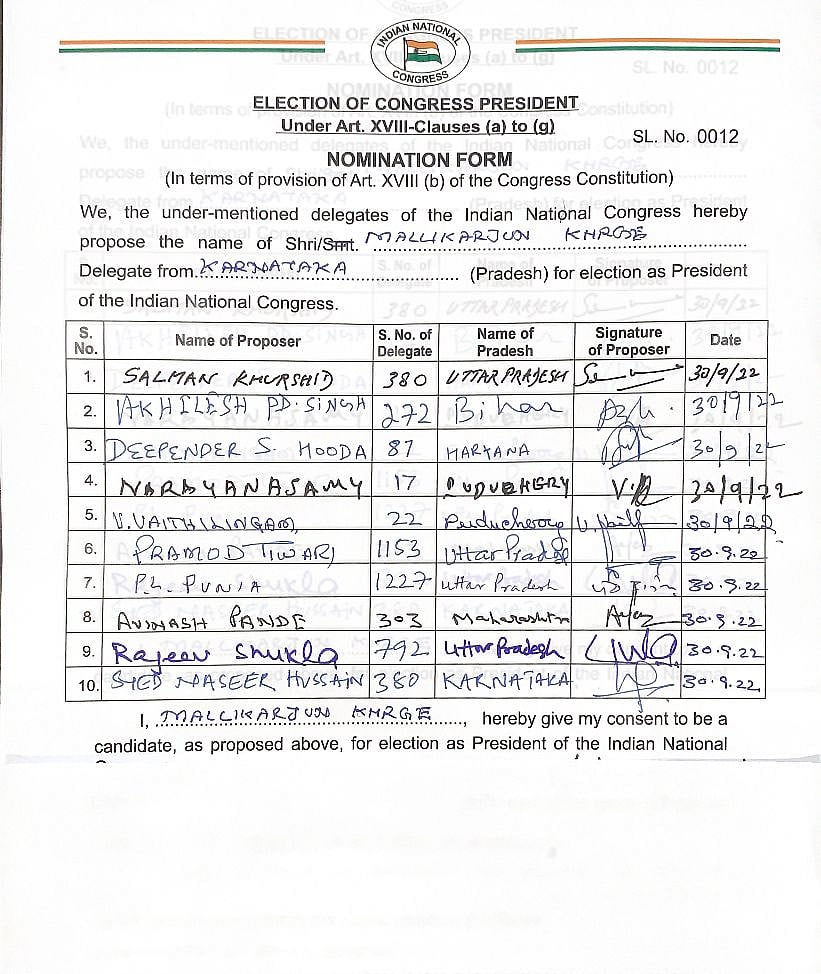 INDIAN NATIONAL CONGRESS
ELECTION OF CONGRESS PRESIDENT
Under Art. XVIII-Clauses (a) to (g)
SL. No. 0012
NOMINATION FORM
(In terms of provision of Art. XVIII (b) of the Congress Constitution)
We, the under-mentioned delegates of the Indian National Congress hereby
propose the name of Shri/Smt. MALLIKARJUN KHRGE
Delegate from KARNATAKA (Pradesh) for election as President
of the Indian National Congress.
S. No. Name of Proposer S. No. of Delegate Name of Pradesh Signature of Proposer Date
1. SALMAN KHURSHID 380 UTTAR PRAJESH 30/9/22
2. AKHILESH PD. SINGH 272 Bihar 30/9/22
3. DEEPENDER S. HOODA 87 HARYANA 30/9/22
4. NARAYANASAMY 17 30/9/22
5. V. VAITHILINGAM, 22 Puducherry 30/9/22
6. PRAMOD TIWARI 1153 Uttar Pradesh 30.9.22
7. P.L. PUNIA 1227 Uttar Pradesh 30.9.22
8. AVINASH PANDE 303 Maharashtra 30.9.22
9. Rajeev Shukla 792 Uttar Pradesh 30.9.22
10. SYED NASEER HUSSAIN 380 KARNATAKA 30.9.22
I, MALLIKARJUN KHRGE, hereby give my consent to be a
candidate, as proposed above, for election as President of the Indian National